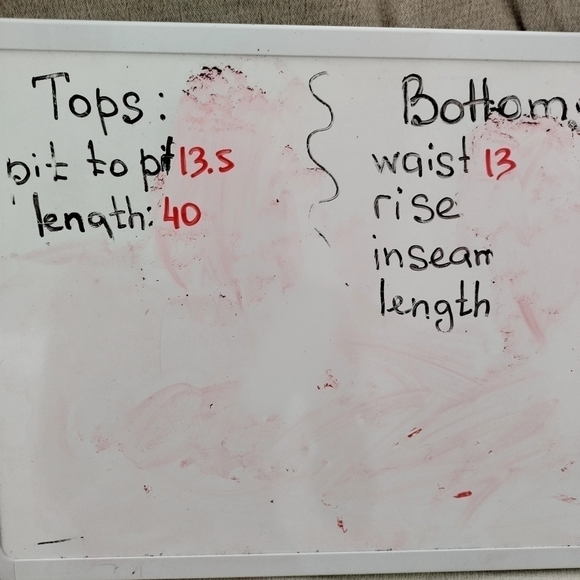 Tops:
pit to pit 13.5
length: 40
Bottom:
waist 13
rise
inseam
length